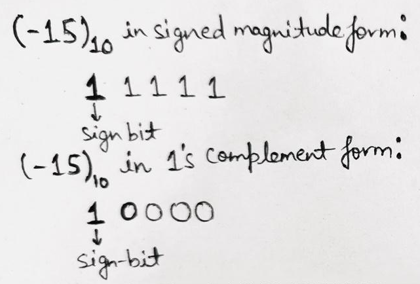 (-15)₁₀ in signed magnitude form:
1 1 1 1 1
↓
sign bit
(-15)₁₀ in 1's complement form:
1 0 0 0 0
↓
sign-bit